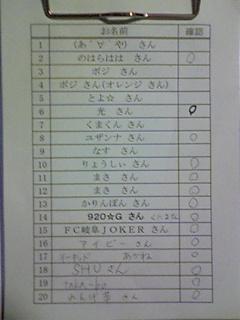 お名前 確認
1 (あ´∀`や) さん
2 のはらはは さん ○
3 ポジ さん
4 ポジ さん(オレンジ さん)
5 とよ☆ さん
6 光 さん ○
7 くまくん さん
8 ユザンナ さん ○
9 なす さん
10 りょうしぃ さん ○
11 まさ さん ○
12 まさ さん ○
13 かりんぽん さん ○
14 920☆G さん ○
15 FC岐阜JOKER さん ○
16 アイビー さん ○
17 ○
18 SHU さん ○
19 ○
20 ○